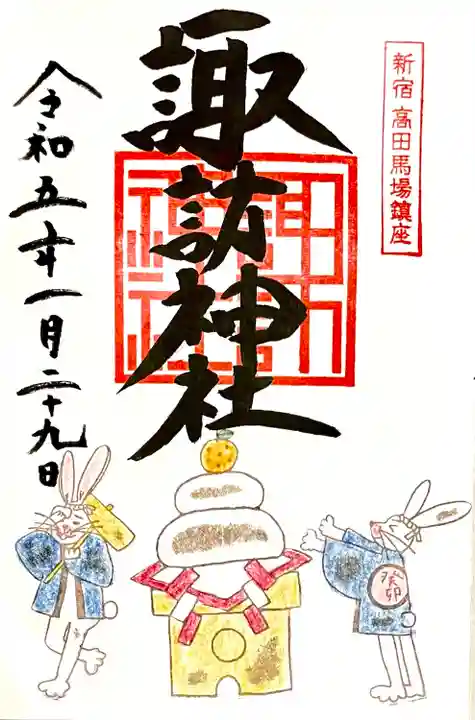 新宿 高田馬場鎮座
諏訪神社
諏訪神社
令和五年一月二十九日
癸卯